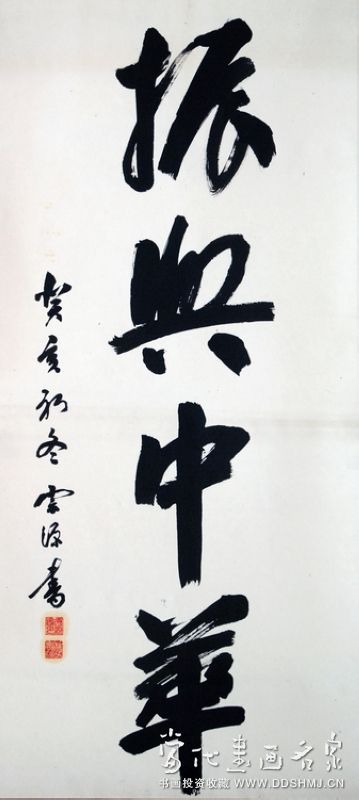 振興中華
癸亥初冬 雲源書
当代書画名家
书画投资收藏 WWW.DDSHMJ.CN